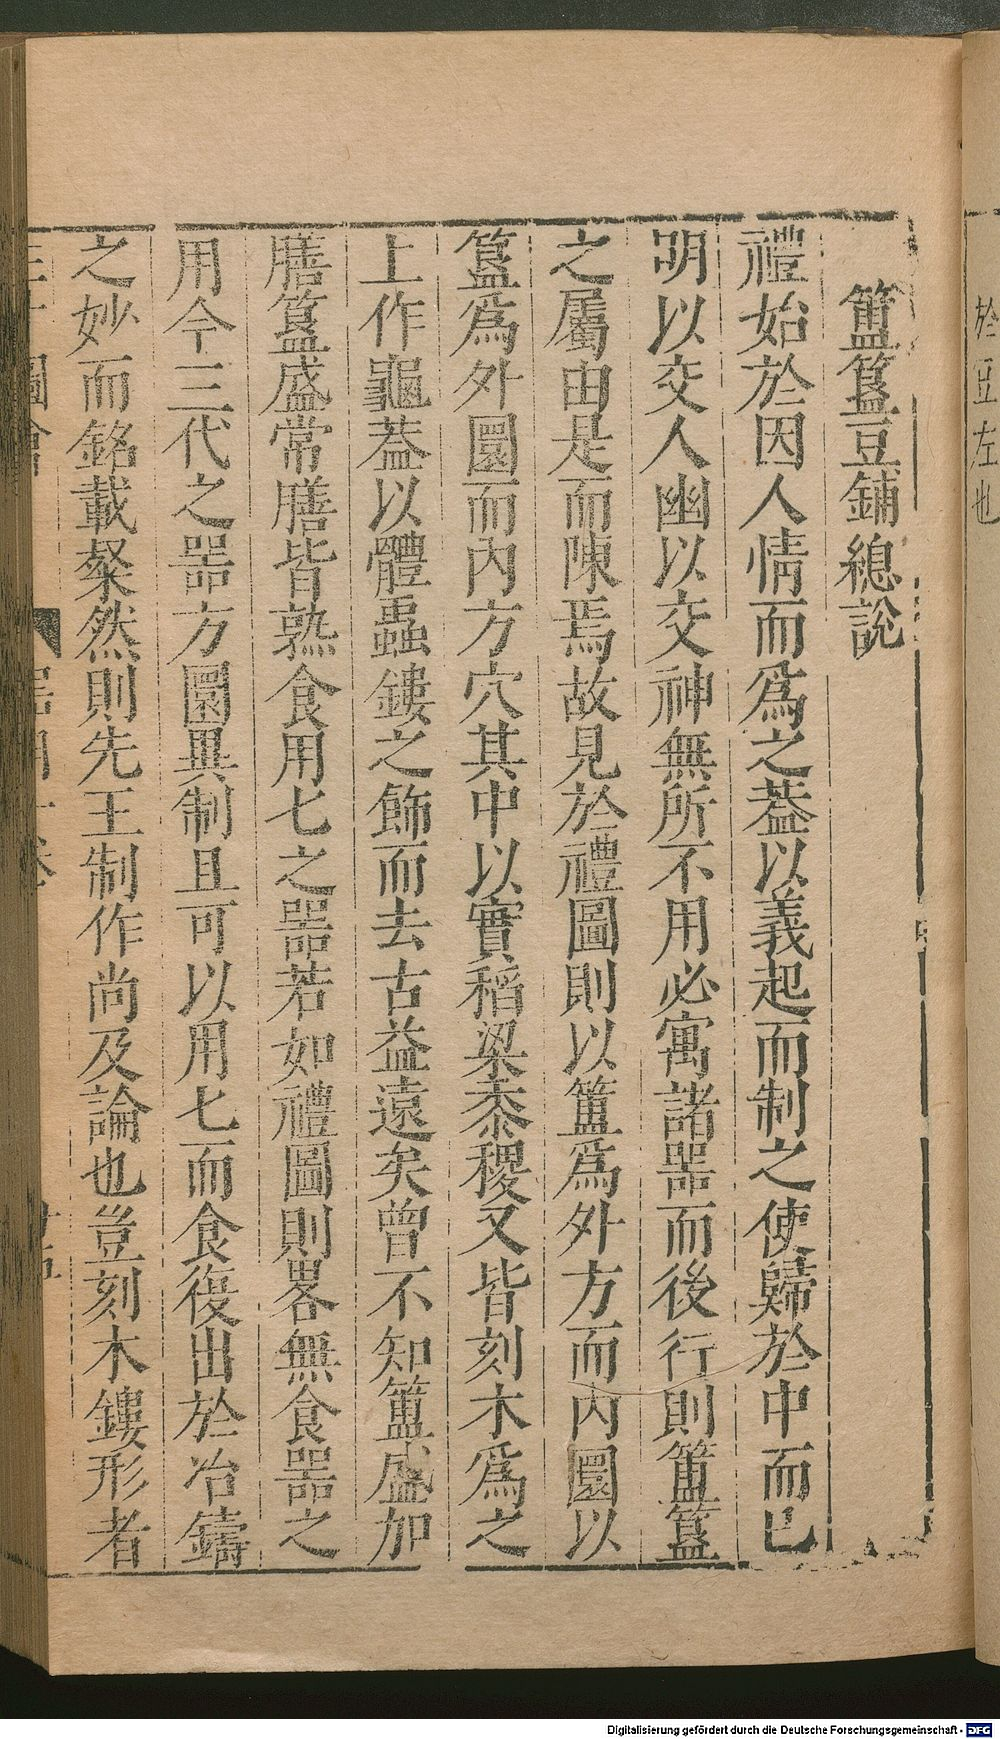 於豆左也
簠簋豆鋪總說
禮始於因人情而爲之葢以義起而制之使歸於中而已
明以交人幽以交神無所不用必寓諸噐而後行則簠簋
之屬由是而陳焉故見於禮圖則以簠爲外方而內圜以
簋爲外圜而內方穴其中以實稻粱黍稷又皆刻木爲之
上作龜葢以體蟲鏤之飾而去古益遠矣曾不知簠盛加
膳簋盛常膳皆熟食用匕之噐若如禮圖則畧無食噐之
用今三代之噐方圜異制且可以用匕而食復出於冶鑄
之妙而銘載粲然則先王制作尚及論也豈刻木鏤形者
圖會
Digitalisierung gefördert durch die Deutsche Forschungsgemeinschaft - DFG